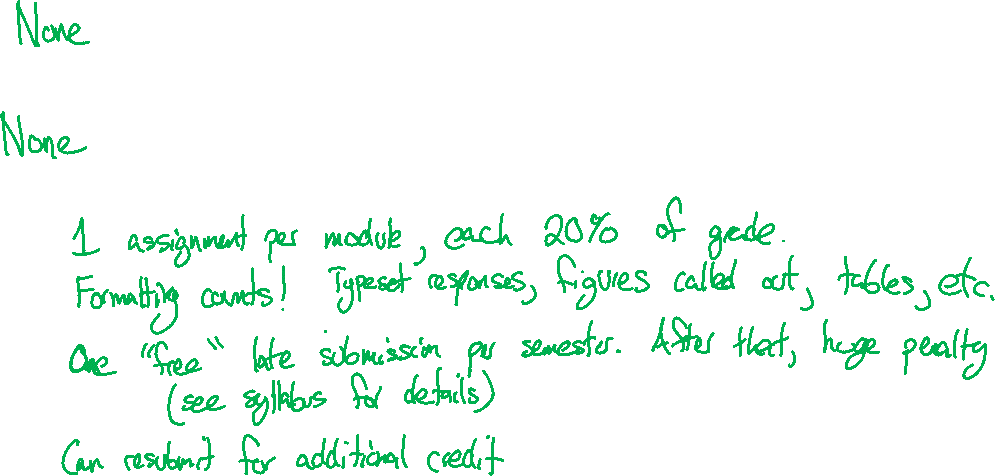 None
None
1 assignment per module, each 20% of grade.
Formatting counts! Typeset responses, figures called out, tables, etc.
One "free" late submission per semester. After that, huge penalty
(see syllabus for details)
Can resubmit for additional credit